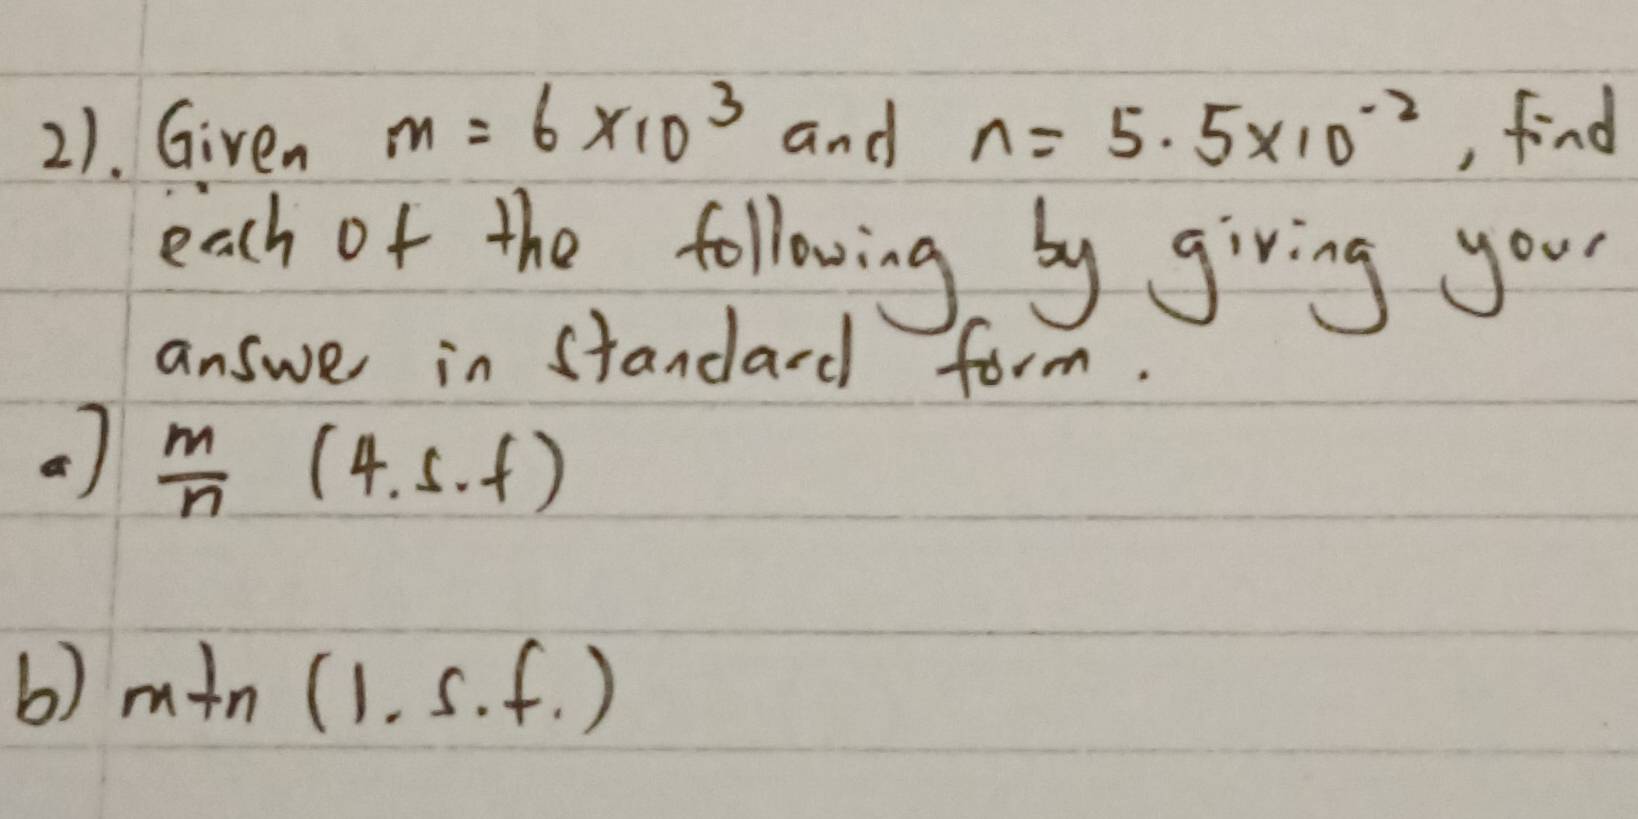 2). Given m = 6 × 10³ and n = 5.5 × 10⁻², find
each of the following by giving your
answer in standard form.
a) m/n (4.s.f)
b) m+n (1.s.f.)